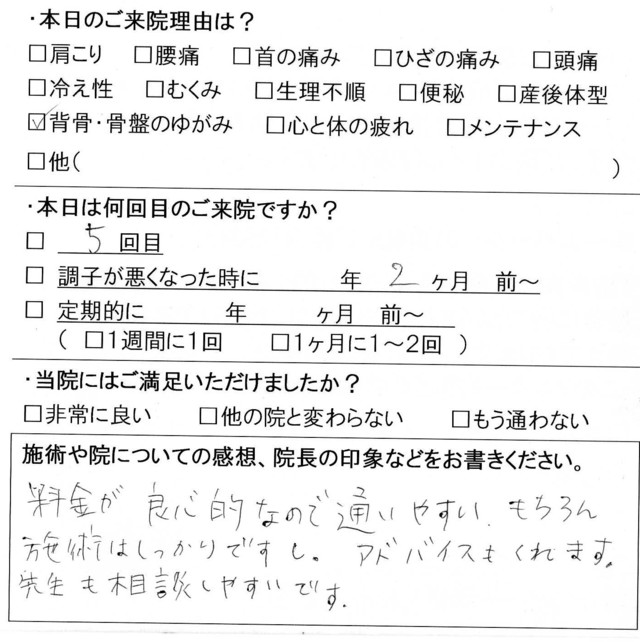 ・本日のご来院理由は？
□肩こり □腰痛 □首の痛み □ひざの痛み □頭痛
□冷え性 □むくみ □生理不順 □便秘 □産後体型
☑背骨・骨盤のゆがみ □心と体の疲れ □メンテナンス
□他( )
・本日は何回目のご来院ですか？
□ 5 回目
□ 調子が悪くなった時に 年 2 ヶ月 前～
□ 定期的に 年 ヶ月 前～
( □1週間に1回 □1ヶ月に1～2回 )
・当院にはご満足いただけましたか？
□非常に良い □他の院と変わらない □もう通わない
施術や院についての感想、院長の印象などをお書きください。
料金が良心的なので通いやすい、もちろん
施術はしっかりですし。アドバイスもくれます。
先生も相談しやすいです。